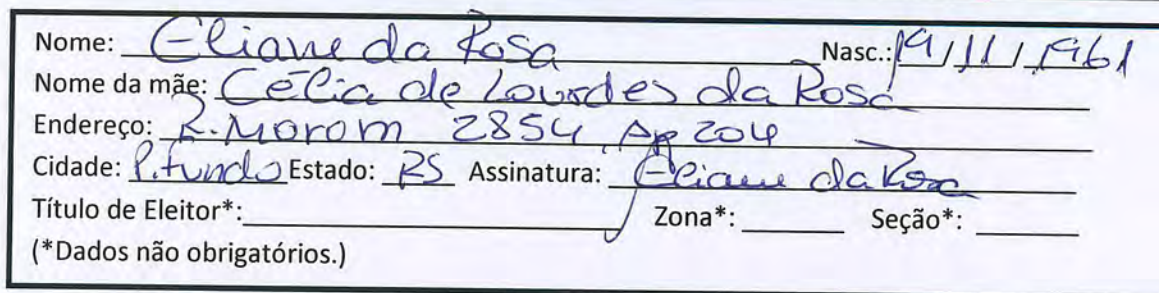 Nome: Eliane da Rosa Nasc.: 19/11/1961
Nome da mãe: Célia de Lourdes da Rosa
Endereço: R. Morom 2854 Ap 204
Cidade: P. Fundo Estado: RS Assinatura: Eliane da Rosa
Título de Eleitor*: Zona*: Seção*:
(*Dados não obrigatórios.)